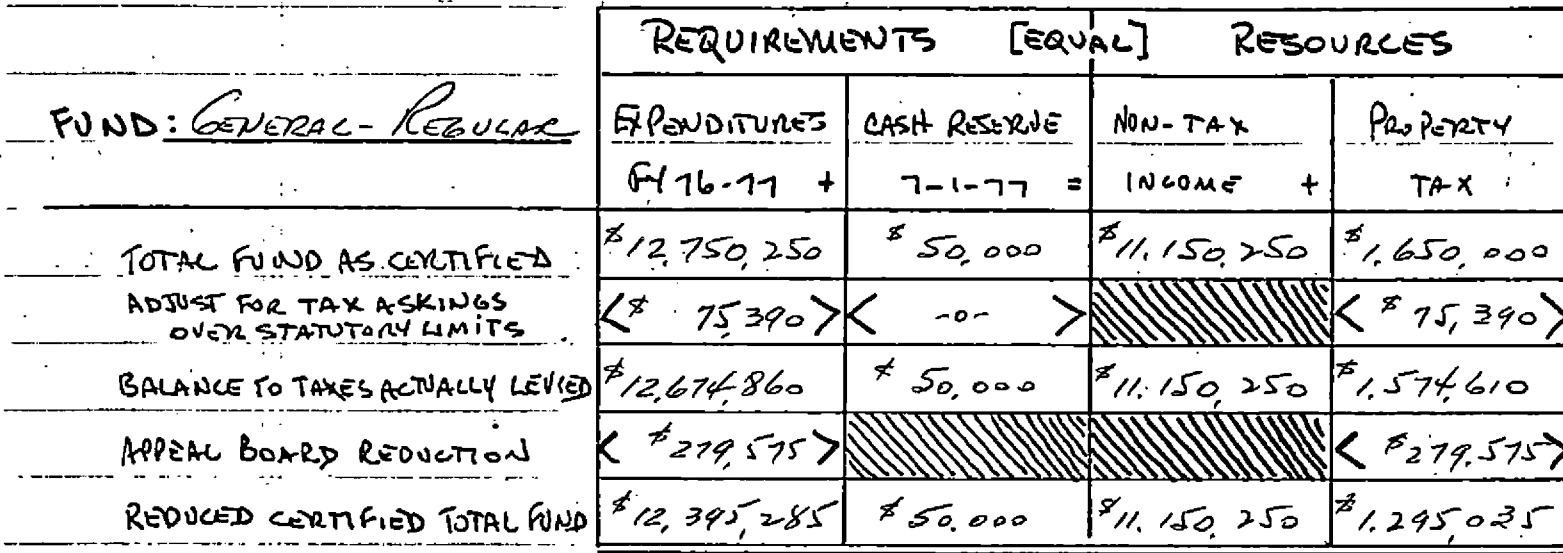 REQUIREMENTS [EQUAL] RESOURCES
FUND: GENERAL - REGULAR EXPENDITURES CASH RESERVE NON-TAX PROPERTY
FY 76-77 + 7-1-77 = INCOME + TAX
TOTAL FUND AS CERTIFIED $12,750,250 $50,000 $11,150,250 $1,650,000
ADJUST FOR TAX ASKINGS
OVER STATUTORY LIMITS <$ 75,390> < -0- > <$75,390>
BALANCE TO TAXES ACTUALLY LEVIED $12,674,860 $50,000 $11,150,250 $1,574,610
APPEAL BOARD REDUCTION <$279,575> <$279,575>
REDUCED CERTIFIED TOTAL FUND $12,395,285 $50,000 $11,150,250 $1,295,035